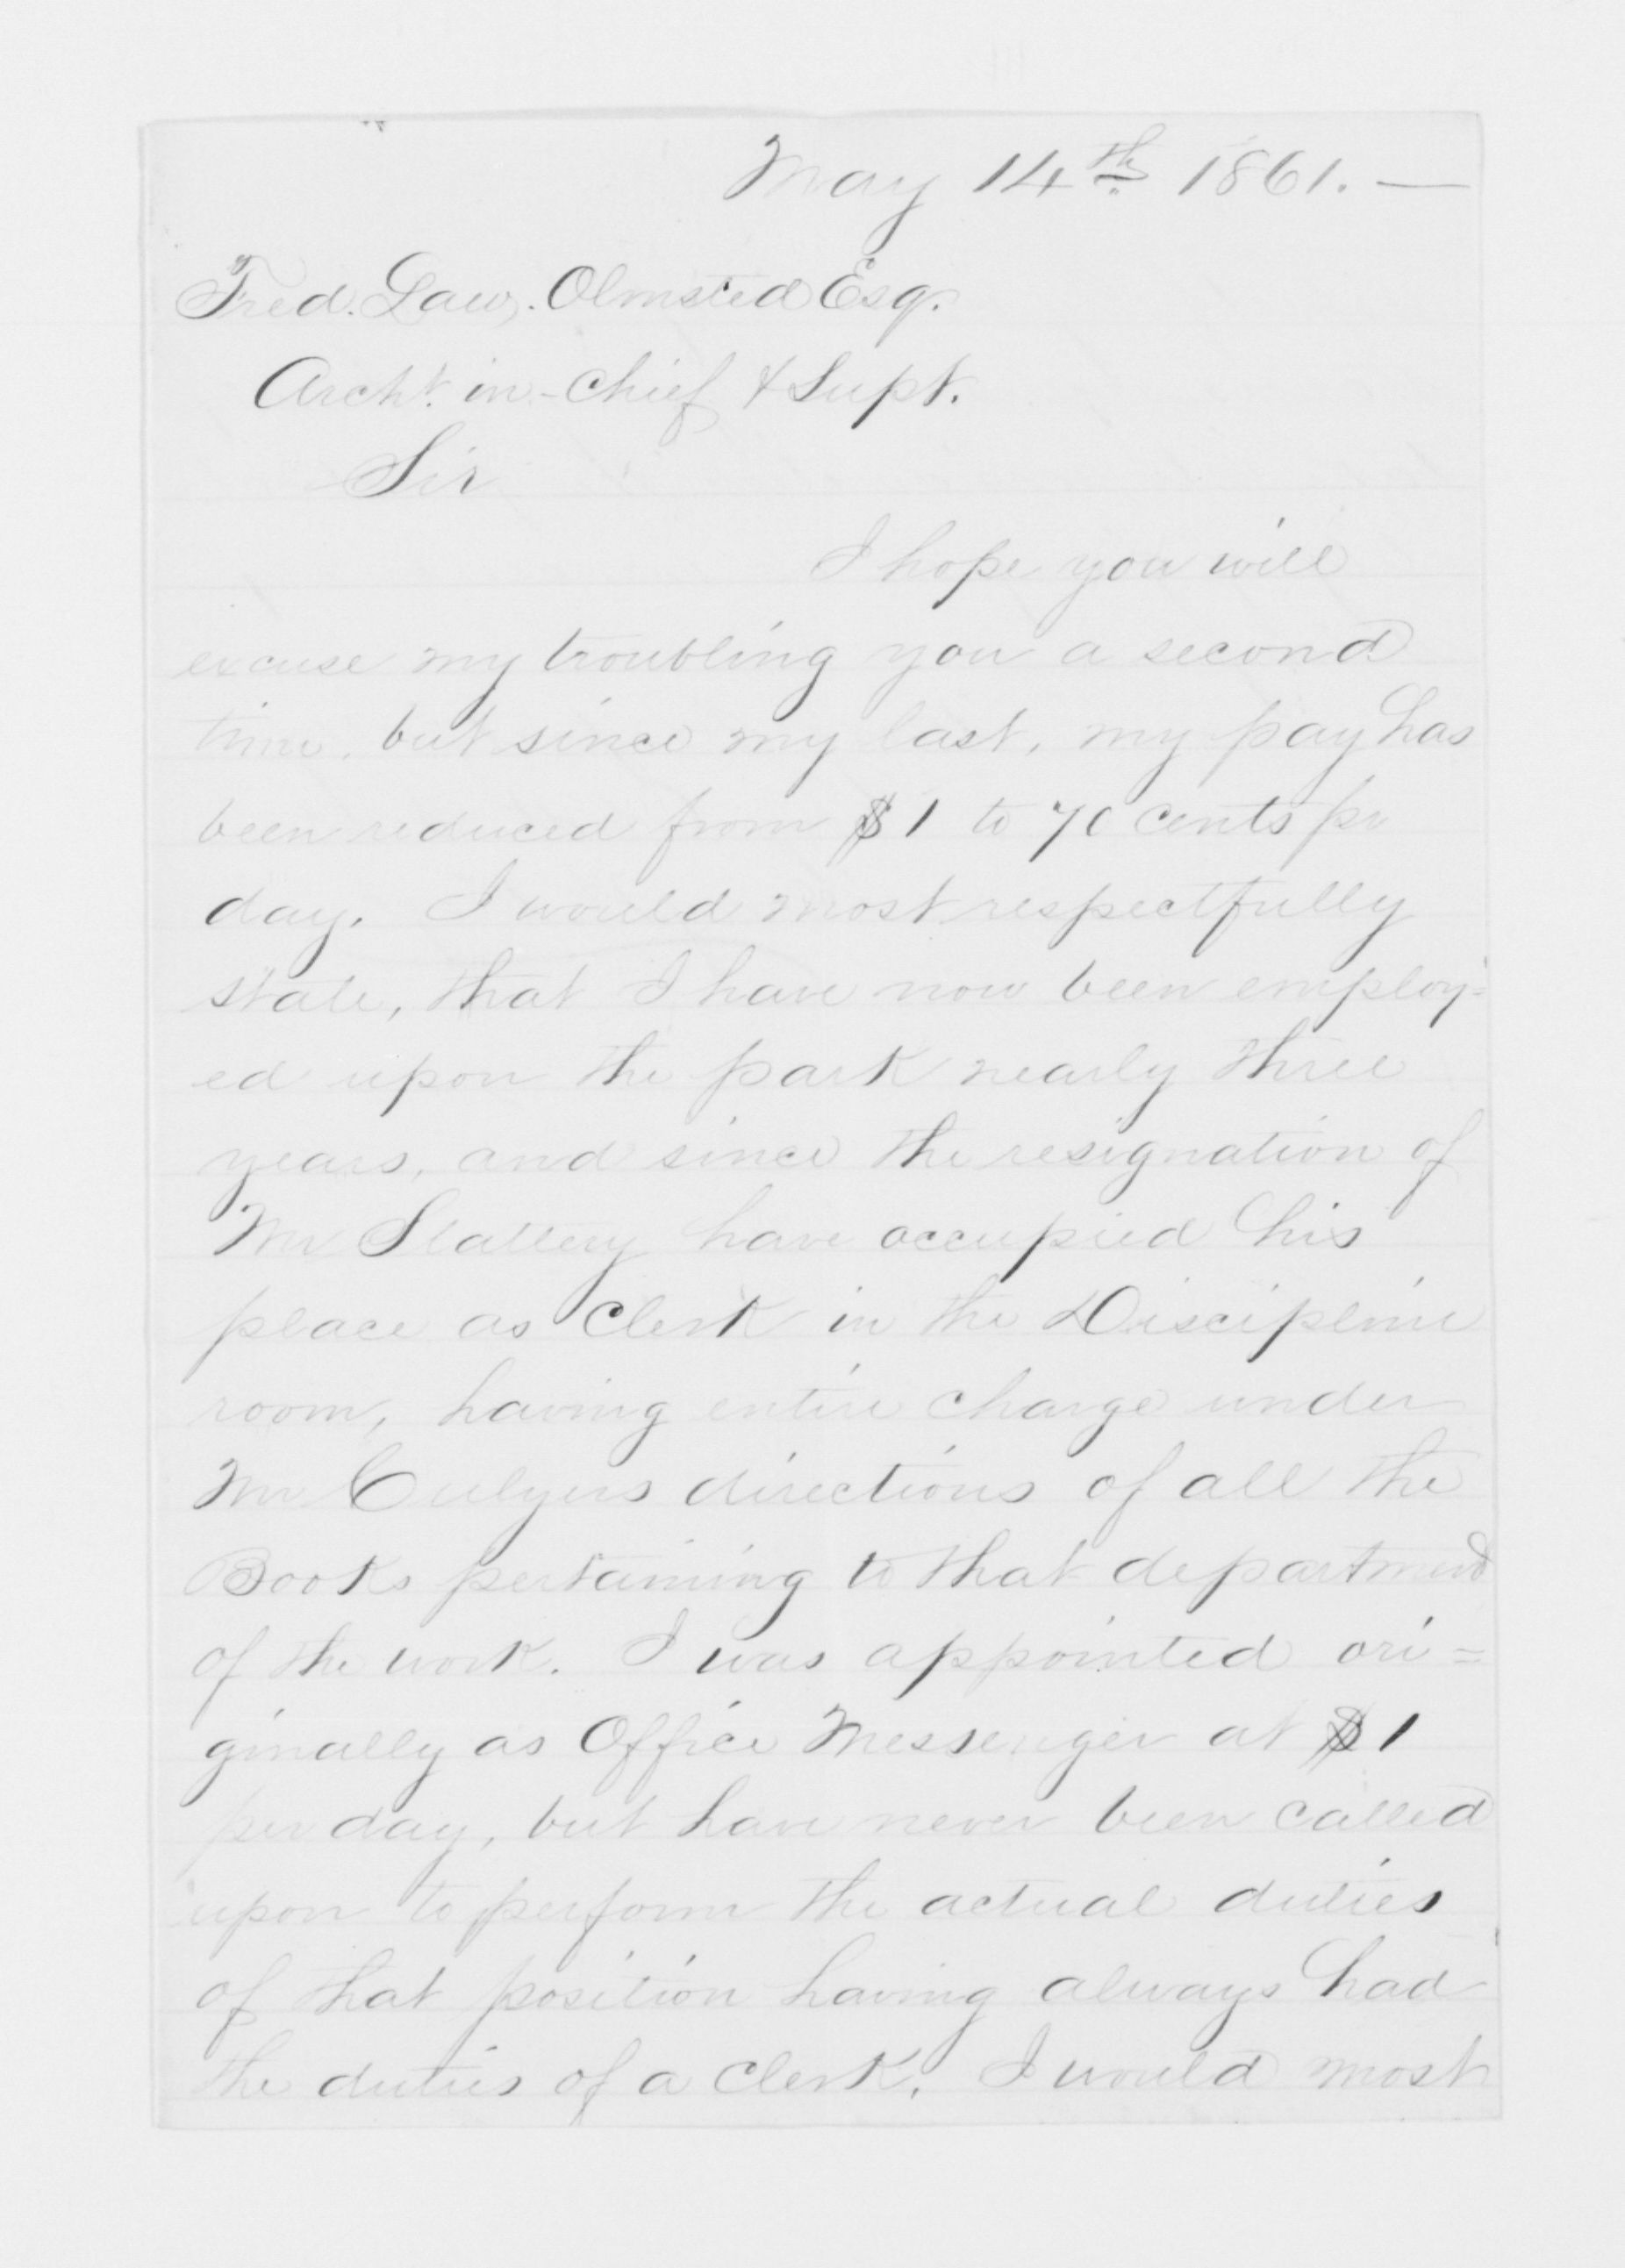 May 14th 1861. —
Fred. Law. Olmsted Esq.
Archt. in-Chief & Supt.
Sir
I hope you will
excuse my troubling you a second
time, but since my last, my pay has
been reduced from $1 to 70 cents pr
day. I would most respectfully
state, that I have now been employ-
ed upon the park nearly three
years, and since the resignation of
Mr Slattery have occupied his
place as Clerk in the Discipline
room, having entire charge under
Mr Culyers directions of all the
Books pertaining to that department
of the work. I was appointed ori=
ginally as Office Messenger at $1
per day, but have never been called
upon to perform the actual duties
of that position having always had
the duties of a Clerk. I would most